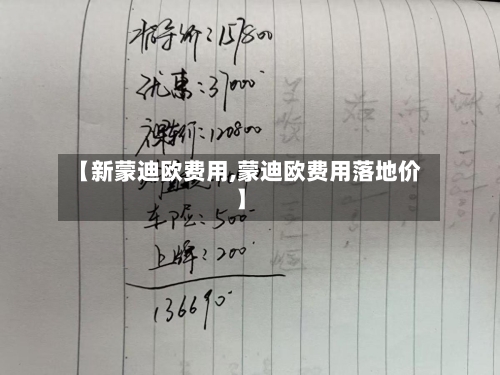 指导价:157800
优惠:37000
裸车价:120800
【新蒙迪欧费用,蒙迪欧费用落地价
】
车险:500
上牌:200
136690